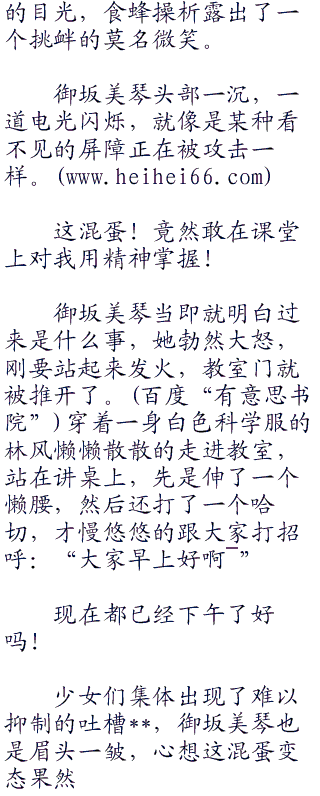 的目光，食蜂操析露出了一
个挑衅的莫名微笑。
御坂美琴头部一沉，一
道电光闪烁，就像是某种看
不见的屏障正在被攻击一
样。(www.heihei66.com)
这混蛋！竟然敢在课堂
上对我用精神掌握！
御坂美琴当即就明白过
来是什么事，她勃然大怒，
刚要站起来发火，教室门就
被推开了。(百度“有意思书
院”)穿着一身白色科学服的
林风懒懒散散的走进教室，
站在讲桌上，先是伸了一个
懒腰，然后还打了一个哈
切，才慢悠悠的跟大家打招
呼：“大家早上好啊¯”
现在都已经下午了好
吗！
少女们集体出现了难以
抑制的吐槽**，御坂美琴也
是眉头一皱，心想这混蛋变
态果然